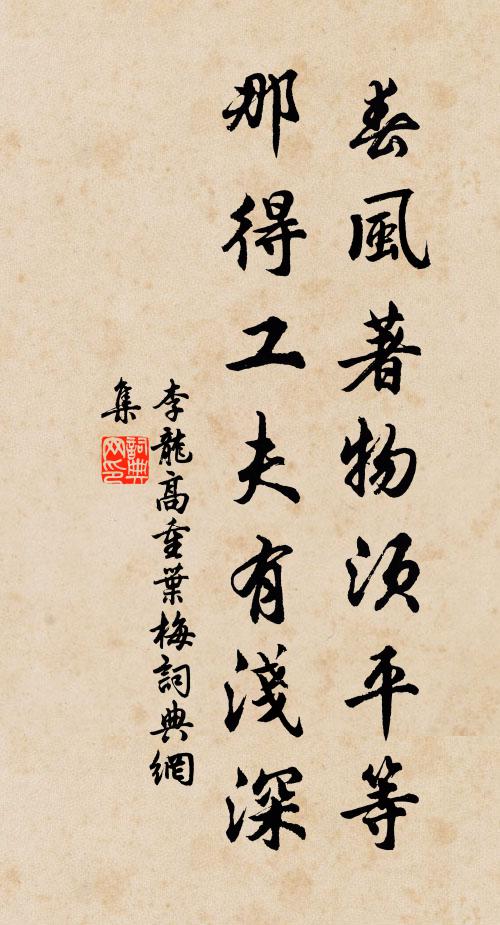 春風著物須平等
那得工夫有淺深
李龍高重葉梅詞典網
集
詞典网印